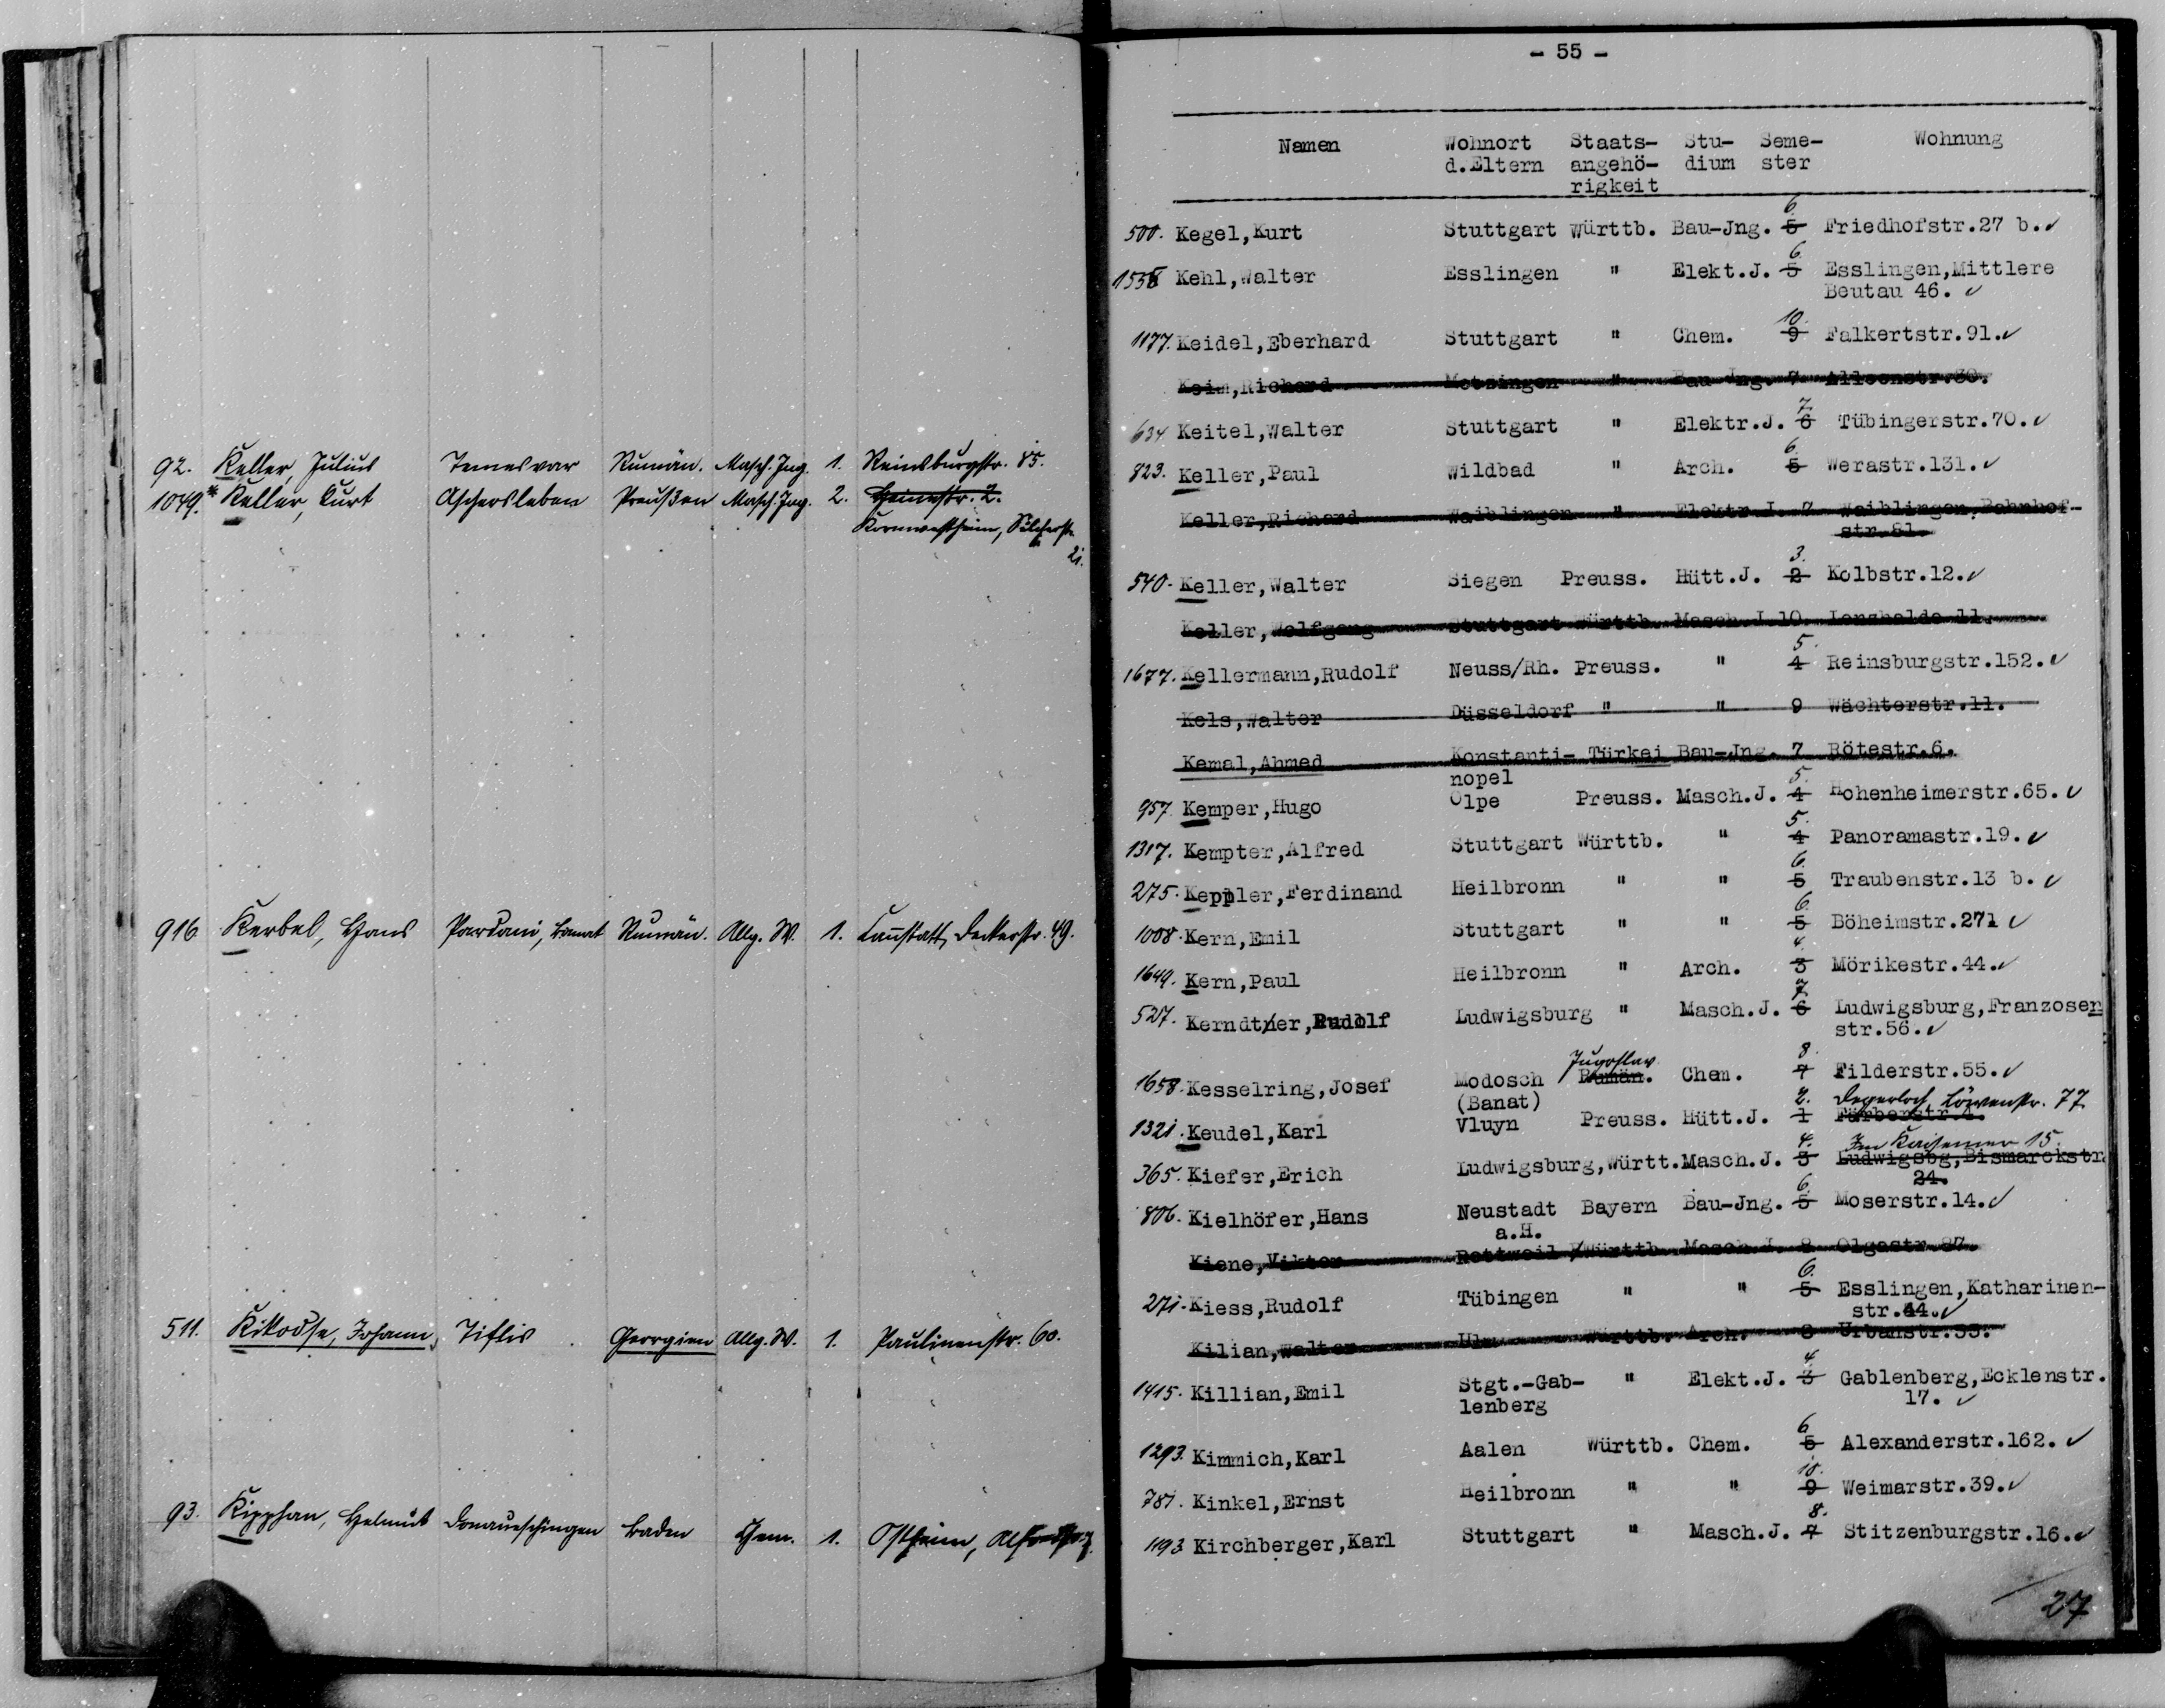 92. Keller, Julius Temesvar Rumän. Masch. Ing. 1. Reinsburgstr. 85.
1049.* Keller, Kurt Aschersleben Preußen Masch. Ing. 2. Heinestr. 2.
Kornwestheim, Silcherstr.
21.
916. Kerbel, Hans Pardani, Banat Rumän. Allg. W. 1. Cannstatt, Deckerstr. 49.
511. Kikodse, Johann, Tiflis Georgien Allg. W. 1. Paulinenstr. 60.
93. Kipphan, Helmut Donaueschingen Baden Chem. 1. Ostheim,
- 55 -
Namen Wohnort Staats- Stu- Seme- Wohnung
d.Eltern angehö- dium ster
rigkeit
6.
500. Kegel,Kurt Stuttgart Württb. Bau-Jng. 5 Friedhofstr.27 b. ✓
6.
Kehl,Walter Esslingen " Elekt.J. 5 Esslingen,Mittlere
Beutau 46. ✓
10.
1177. Keidel,Eberhard Stuttgart " Chem. 9 Falkertstr.91. ✓
Keim,Richard Metzingen " Bau-Jng. 7 Alleenstr.30.
7.
634 Keitel,Walter Stuttgart " Elektr.J. 6 Tübingerstr.70. ✓
6.
823. Keller,Paul Wildbad " Arch. 5 Werastr.131. ✓
Keller,Richard Waiblingen " Elektr.J. 7 Waiblingen,Bahnhof-
str.81.
3.
540. Keller,Walter Siegen Preuss. Hütt.J. 2 Kolbstr.12. ✓
Keller,Wolfgang Stuttgart Württb. Masch.J.10 Lenzhalde 11.
5.
1677. Kellermann,Rudolf Neuss/Rh. Preuss. " 4 Reinsburgstr.152. ✓
Kels,Walter Düsseldorf " " 9 Wächterstr.11.
Kemal,Ahmed Konstanti- Türkei Bau-Jng. 7 Rötestr.6.
nopel 5.
957 Kemper,Hugo Olpe Preuss. Masch.J. 4 Hohenheimerstr.65. ✓
5.
1317. Kempter,Alfred Stuttgart Württb. " 4 Panoramastr.19. ✓
6.
275. Keppler,Ferdinand Heilbronn " " 5 Traubenstr.13 b. ✓
6.
1008. Kern,Emil Stuttgart " " 5 Böheimstr.271 ✓
4.
1649. Kern,Paul Heilbronn " Arch. 3 Mörikestr.44. ✓
7.
527. Kerndtner,Rudolf Ludwigsburg " Masch.J. 6 Ludwigsburg,Franzosen
str.56. ✓
Jugoslav. 8.
1658. Kesselring,Josef Modosch Rumän. Chem. 7 Filderstr.55. ✓
(Banat) 2. Degerloch, Löwenstr. 77
1321. Keudel,Karl Vluyn Preuss. Hütt.J. 1 Färberstr.4.
4. Im Kaisemer 15.
365. Kiefer,Erich Ludwigsburg,Württ.Masch.J. 3 Ludwigsbg,Bismarckstr.
24.
6.
806. Kielhöfer,Hans Neustadt Bayern Bau-Jng. 5 Moserstr.14. ✓
a.H.
Kiene,Viktor Rottweil Württb. Masch.J. 8 Olgastr.87.
6.
271. Kiess,Rudolf Tübingen " " 5 Esslingen,Katharinen-
str.44. ✓
Kilian,Walter Ulm Württb. Arch. 8 Urbanstr.53.
4.
1415. Killian,Emil Stgt.-Gab- " Elekt.J. 3 Gablenberg,Ecklenstr.
lenberg 17. ✓
6.
1293. Kimmich,Karl Aalen Württb. Chem. 5 Alexanderstr.162. ✓
10.
781. Kinkel,Ernst Heilbronn " " 9 Weimarstr.39. ✓
8.
1193 Kirchberger,Karl Stuttgart " Masch.J. 7 Stitzenburgstr.16. ✓
27